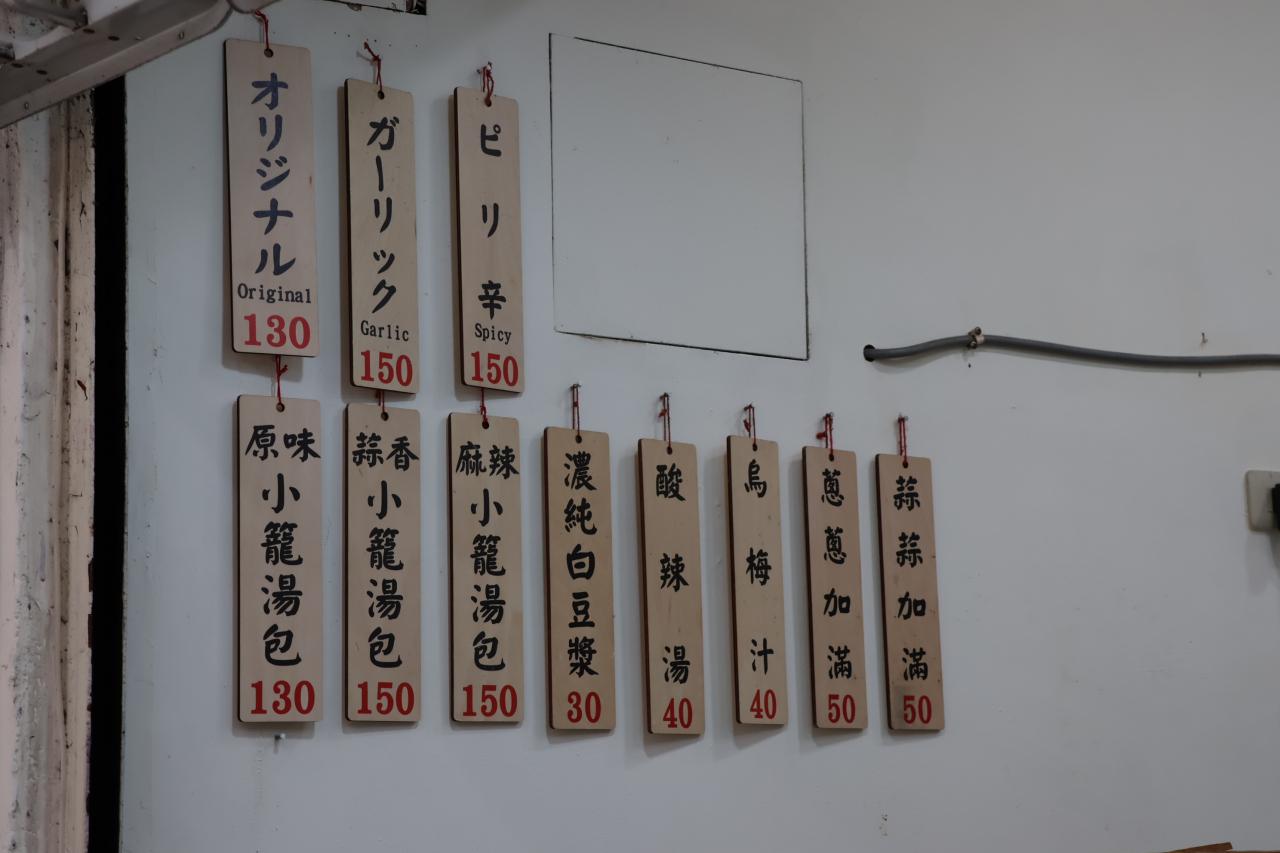 オリジナル
Original
130
ガーリック
Garlic
150
ピリ辛
Spicy
150
原味
小籠湯包
130
蒜香
小籠湯包
150
麻辣
小籠湯包
150
濃純白豆漿
30
酸辣湯
40
烏梅汁
40
蔥蔥加滿
50
蒜蒜加滿
50